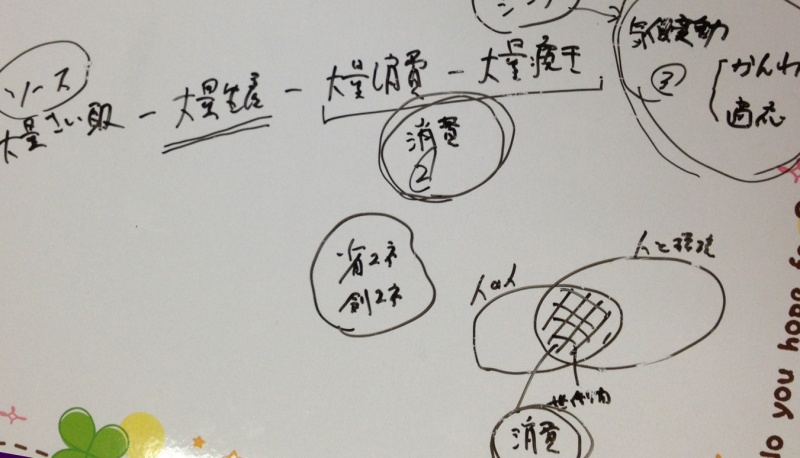 ソース
大量さい取 - 大量生産 - 大量消費 - 大量廃棄
消費
②
気候変動
③
かんわ
適応
省エネ
創エネ
人と環境
人の人
消費
do you hope fo